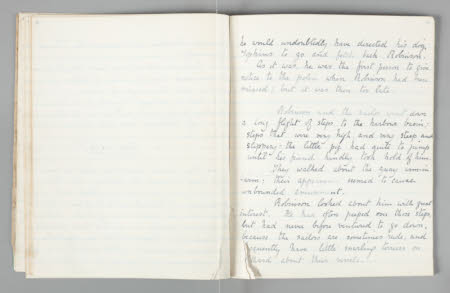 he would undoubtedly have directed his dog,
to go and fetch back Robinson.
As it was, he was the first person to give
notice to the police when Robinson had been
missed; but it was then too late.
Robinson and the sailor went down
a long flight of steps to the harbour basin;
steps that were very high and very steep and
slippery – the little pig had quite to jump
until his friend kindly took hold of him.
They walked about the quay
arm; their appearance seemed to cause
unbounded amusement.
Robinson looked about him with great
interest. He had often peeped over those steps,
but had never before ventured to go down,
because the sailors are sometimes rude, and
frequently have little snarling terriers on
guard about their vessels.